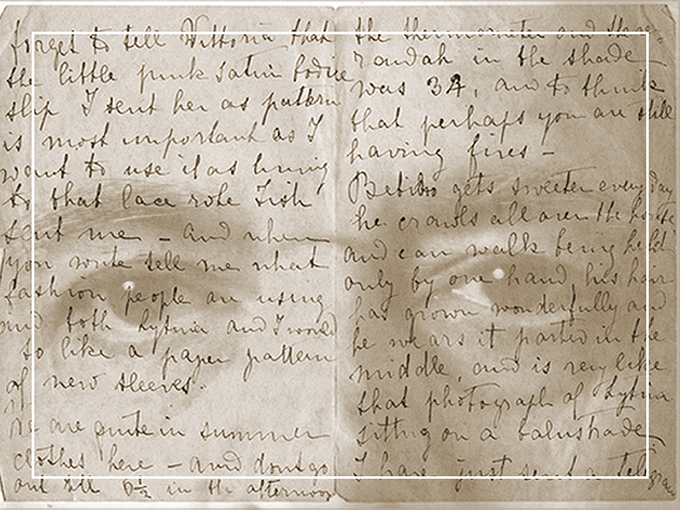 forget to tell Vittoria that
the little pink satin bodice
slip I sent her as pattern
is most important as I
want to use it as lining
to that lace robe Tish
sent me - and when
you write tell me what
fashion people are using
and both Lytinia and I would
so like a paper pattern
of new sleeves.
We are quite in summer
clothes here - and dont go
out till 6½ in the afternoon
the thermometer and the
randah in the shade
was 34, and to think
that perhaps you are still
having fires -
gets sweeter every day
he crawls all over the house
and can walk being held
only by one hand, his hair
has grown wonderfully and
he wears it parted in the
middle, and is very like
that photograph of
sitting on a balustrade
I have just sent a telegram